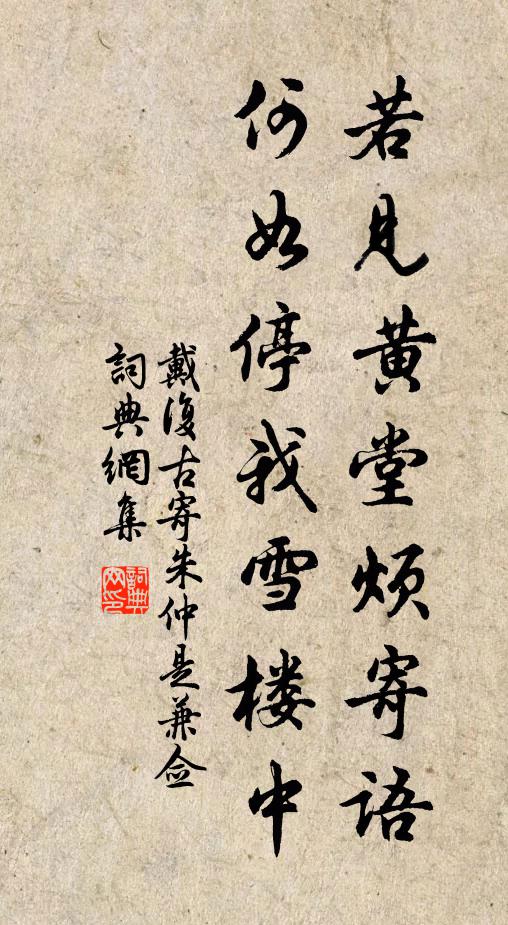 若見黄堂煩寄語
何如停我雪楼中
戴復古寄朱仲是兼僉
詞典網集
詞典网印